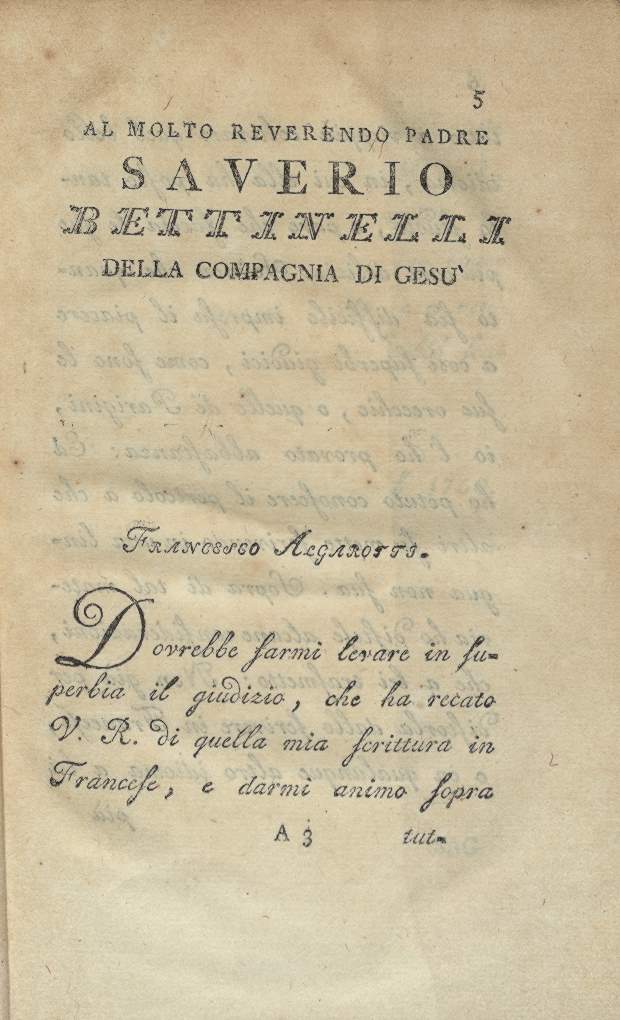 5
AL MOLTO REVERENDO PADRE
SAVERIO
BETTINELLI
DELLA COMPAGNIA DI GESU'
FRANCESCO ALGAROTTI.
Dovrebbe farmi levare in ſu=
perbia il giudizio, che ha recato
V. R. di quella mia ſcrittura in
Franceſe, e darmi animo ſopra
A 3 tut=